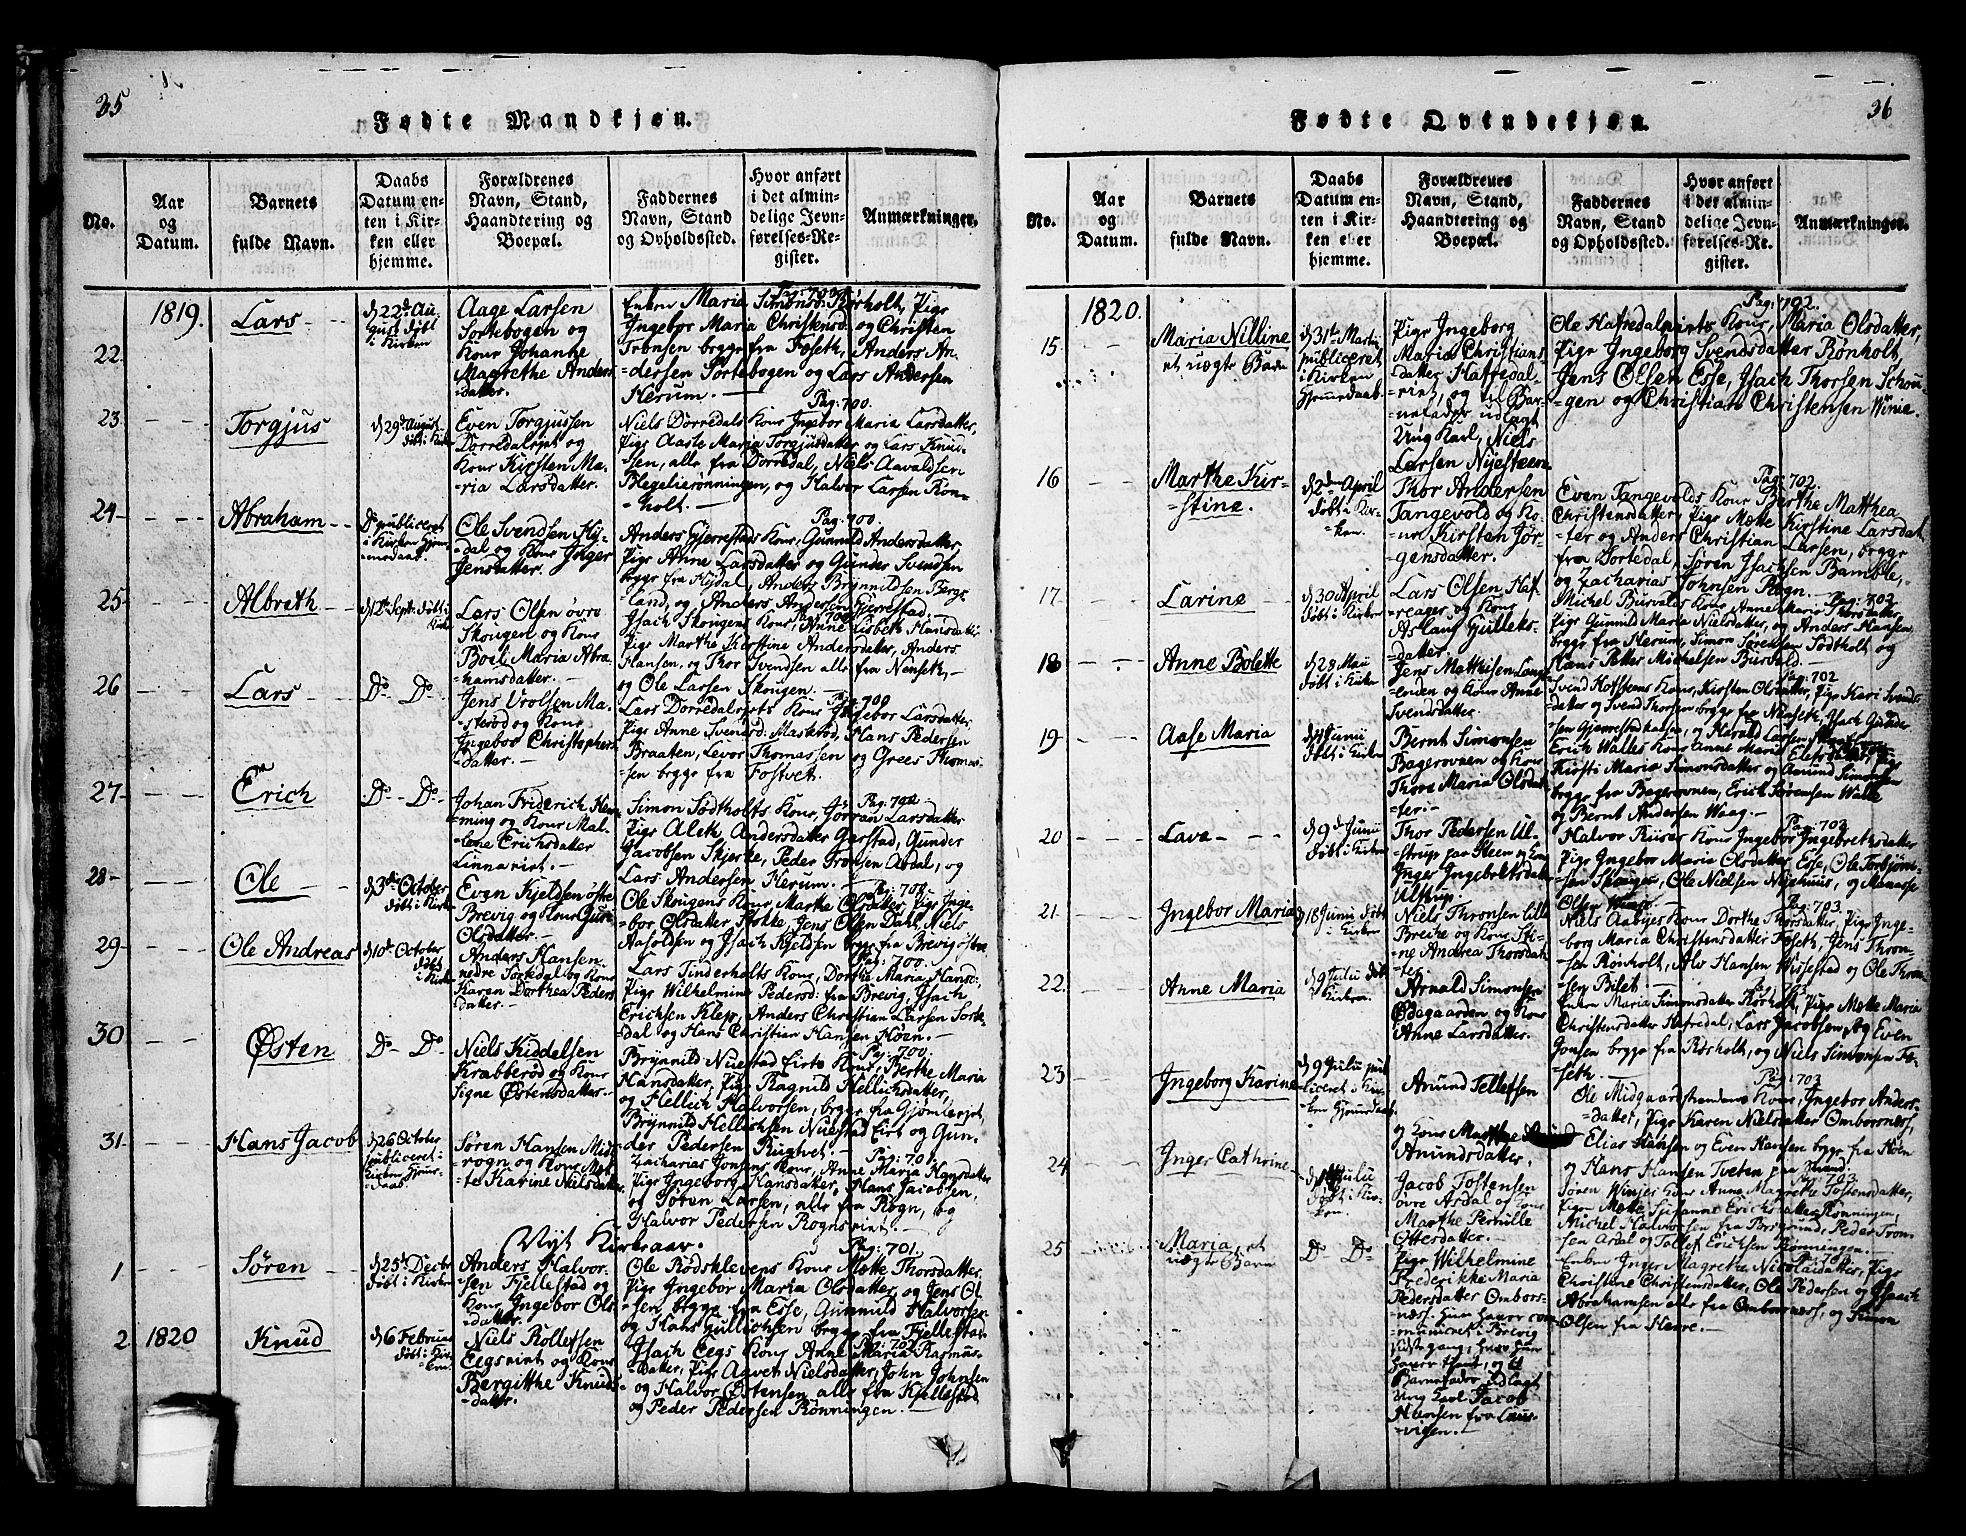 35
Fødte Mandkjøn.
No.
Aar
og
Datum.
Barnets
fulde Navn.
Daabs
Datum en-
ten i Kir-
ken eller
hjemme.
Forældrenes
Navn, Stand,
Haandtering og
Boepæl.
Faddernes
Navn, Stand
og Opholdssted.
Hvor anført
i det almin-
delige Jevn-
førelses-Re-
gister.
Anmærkninger.
1819.
22
Lars
d 22de Au-
gust døbt
i Kirken
Aage Larsen
Sortebogen og
Kone Johanne
Magrethe Anders
datter.
Pag: 703
Enken Maria Simonsd: Rørholt, Pige
Ingebor Maria Christensd: og Christen
Tronsen begge fra Foseth, Anders An-
-dersen Sortebogen og Lars Andersen
Herum.
23
Torgjus
d 29de August
døbt i Kirken
Even Torgjussen
Dørredalspt og
Kone Kirsten Ma-
ria Larsdatter.
Pag: 700.
Niels Dørredals Kone Ingebor Maria Larsdatter,
Pige Aaste Maria Torgjusdatter og Lars Knud-
-sen, alle fra Dørredal, Niels Aavaldsen
Blegelierønningen, og Halvor Larsen Røn-
-holt.
24
Abraham
Do publiceret
i Kirken hjem-
medaab.
Ole Svendsen Hy-
-dal og Kone Inger
Jensdatter.
Pag: 700.
Anders Gjerrestads Kone, Gunnild Andersdatter
Pige Anne Larsdatter og Gunder Svendsen
begge fra Hydal, Anders Brynnildsen Berge
land, og Anders Andersen Gjerrestad.
25
Albreth
d 12te Septbr døbt i
Kirken
Lars Olsen øvre
Skougen og Kone
Boel Maria Abra-
hamsdatter.
Pag: 700
Isach Skougens Kone, Anne Lisbeth Hansdatter
Pige Marthe Kirstine Andersdatter, Anders
Hansen, og Thor Svendsen alle fra Nenseth,
og Ole Larsen Skougen.
26
Lars
Do Do
Jens Vrolsen Ma-
-sterød og Kone
Ingebor Christophers
datter.
Pag: 700
Lars Dørredalspts Kone Ingebor Larsdatter,
Pige Anne Svensd: Maskrød, Hans Pedersen
Braaten, Levor Thomassen og Grees Thomas-
-sen begge fra Fostvet.
27
Erich
Do Do
Johan Friderich Hem-
-ming og Kone Mal-
lene Erichsdatter
Linnariet.
Pag: 702.
Simon Sødtholts Kone, Jørran Larsdatter
Pige Aleth Andersdatter Gerstad, Gunder
Jacobsen Skjerke, Peder Tronsen Ardal, og
Lars Andersen Herum.
28
Ole
d 3die October
døbt i Kirken
Even Kjeldsen østre
Brevig og Kone Guri
Olsdatter.
Pag: 702.
Ole Skougens Kone, Marthe Olsdatter, Pige Inge-
bor Olsdatter Stokke, Jens Olsen Dahl, Niels
Aasoldsen og Isach Kjeldsen begge fra Brevig østre
29
Ole Andreas
d 10de October
døbt
i Kirken
Anders Hansen
nedre Tortedal og Kone
Karen Dorthea Peders
datter.
Pag: 700.
Lars Tinderholts Kone, Dorthe Maria Hansd:,
Pige Wilhelmine Pedersd: fra Brevig, Isach
Erichsen Klep, Anders Christian Larsen Torte-
dal og Hans Christian Hansen Høen.
30
Østen
Do Do
Niels Kiddelsen
Kræbberød og Kone
Signe Østensdatter
Pag: 700.
Brynnild Nuestad Eirts Kone, Berthe Maria
Hansdatter, Pige Ragnild Hellichsdatter,
og Hellich Halvorsen, begge fra Gjømlerejet,
Brynnild Hellichsen Nuestad Eirt og Gun-
der Pedersen Rughvet.
31
Hans Jacob
d 26 October
publiceret i
Kirken hjem-
daab.
Søren Hansen Mid-
rogn og Kone Met-
te Karine Nielsdatter
Pag: 701.
Zacharias Jonsens Kone, Anne Maria Hansdatter
Pige Ingeborg Hansdatter, Hans Jacobsen,
og Søren Larsen, alle fra Rogn, og
Halvor Pedersen Rognsriet.
Nyt Kirkeaar.
1
Søren
d 25de Decbr
døbt i Kirken
Anders Halvor-
-sen Fjellestad
Kone Ingebor Ols
datter.
Pag: 701.
Ole Rødsklevens Kone Mette Thorsdatter,
Pige Ingebor Maria Olsdatter, og Jens Ol
-sen, begge fra Esse, Gunnuld Halvorsen
og Hans Gullichsen, begge fra Fjellestad.
2
1820
Knud
d 6 Februar
døbt i Kir-
-ken.
Niels Rollefsen
Eegsriet og Kone
Bergitthe Knuds
-datter.
Pag: 702
Isach Eegs Kone Anne Maria Rasmus-
datter, Pige Agvet Nielsdatter, John Johnsen
og Halvor Østensen alle fra Kjellestad
og Peder Pedersen Rønningen.
36
Fødte Qvindekjøn.
No.
Aar
og
Datum.
Barnets
fulde Navn.
Daabs
Datum en-
ten i Kir-
ken eller
hjemme.
Forældrenes
Navn, Stand,
Haandtering og
Boepæl.
Faddernes
Navn, Stand
og Opholdssted.
Hvor anført
i det almin-
delige Jevn-
førelses-Re-
gister.
Anmærkninger.
1820.
15
Maria Nilline
et uægte Barn
d 31te Martii
publiceret
i Kirken
hjemmedaab
Pige Ingeborg
Maria Christians
datter Hafredal-
riet, og til Bar-
nefader udlagt
Ung Karl, Niels
Larsen Nyesteen
Pag: 702.
Ole Hafredalriets Kone, Maria Olsdatter,
Pige Ingeborg Svendsdatter Rønholt,
Jens Olsen Esse, Isach Thorsen Schou
-gen og Christian Christensen Winie.
16
Marthe Kir-
-stine.
d 2den April
døbt i Kir-
ken.
Thor Andersen
Tangevold og Ko-
ne Kirsten Jør-
gensdatter.
Pag: 702.
Even Tangevolds Kone, Berthe Matthea
Christensdatter, Pige Mette Kirstine Larsdat
-ter og Anders Christian Larsen, begge
fra Tortedal, Søren Isachsen Bamble,
og Zacharias Johnsen Rogn.
17
Larine
d 30 April
døbt i Kirken
Lars Olsen Haf-
-reager og Kone
Aslaug Gulleks-
datter.
Pag: 702
Michel Burvalds Kone Anne Marie Thorsdatter
Pige Gunnild Maria Nielsdatter, og Anders Hansen
begge fra Herum, Simon Sørensen Sødtholt og
Hans Petter Michelsen Burvald.
18
Anne Bolette
d 28 Maii
døbt i Kirken
Jens Matthisen Lang-
enden og Kone Anne
Svendsdatter
Pag: 702
Svend Hofstens Kone, Kirsten Olsdatter, Pige Kari Svends
datter og Svend Thorsen begge fra Nenseth, Isach Gunder
sen Gjerrestadhougen, og Harald Larsen
19
Aase Maria
d 4 Junii
døbt i Kirken
Bernt Simonsen
Bagerovnen og Kone
Thore Maria Olsdat-
ter.
Erich Walles Kone Anne Maria Pige
Kirsti Maria Simonsdatter og Amund Simonsen
begge fra Bagerovnen, Erich Sørensen Walle
og Bernt Andersen Waag.
20
Lava
d 9de Junii
døbt i Kirken
Thor Pedersen Ul-
strup paa Steen og Kone
Inger Ingebretsdatter
Ulstrup
Pag: 703.
Halvor Rises Kone Ingebor Ingebrethsdatter
Pige Ingebor Maria Olsdatter Esse, Ole Torbjørn-
-sen Skougen, Ole Nielsen Nyehuus, og Manasse
Olsen
21
Ingebor Maria
d 18 Junii døbt
i Kirken
Niels Thronsen lille
Breike og Kone Sti-
ne Andrea Thorsdat
ter
Pag: 703.
Niels Aabyes Kone Dorthe Thorsdatter, Pige Inge-
borg Maria Christensdatter Foseth, Jens Thron-
-sen Rønholt, Alv Hansen Wissestad og Ole Thron-
sen Bilet.
22
Anne Maria
d 9 Julii døbt
i Kirken
Arnald Simonsen
Ødegaarden og Kone
Anne Larsdatter.
Enken Maria Simonsdatter Rørholt, Pige Mette Maria
Christensdatter Hafredal, Lars Jacobsen, og Even
Jonsen begge fra Rørholt, og Niels Simonsen Fo-
-seth.
23
Ingeborg Karine
d 9 Julii pub
liceret i Kir-
ken hjemmdaab.
Amund Tellefsen
og Kone Marthe
Amundsdatter.
Pag: 703
Ole Midgaardstrandens Kone, Ingebor Anders-
datter, Pige Karen Nielsdatter Ombornæss,
Elias Hansen og Even Hansen begge fra Høen
og Hans Hansen Tveten paa
24
Inger Cathrine
d Julii
døbt i Kir-
ken.
Jacob Tostensen
øvre Ardal og Kone
Marthe Pernille
Ottersdatter.
Pag: 703.
Søren Winjes Kone Anne Magrethe Tostensdatter,
Pige Mette Susanne Erichsdatter Rønningen,
Michel Halvorsen fra Borgrund, Peder Tron
sen Ardal og Tollef Erichsen Rønningen.
25
Maria, et
uægte Barn
Do Do
Pige Wilhelmine
Frederikke Maria
Pedersdatter Ombors-
næss, hun haver com-
municeret i Brevig
sidste gang, hvor hun
haver tjent, og til
Barnefader udlagt
Ung Karl Jacob
Hansen fra Laur-
vigen.
Pag: 703
Enken Inger Magrethe Nicolaidatter, Pige
Christine Christensdatter, Ole Pedersen og Isach
Abrahamsen alle fra Ombornæss, og Simon
Olsen fra Herre.